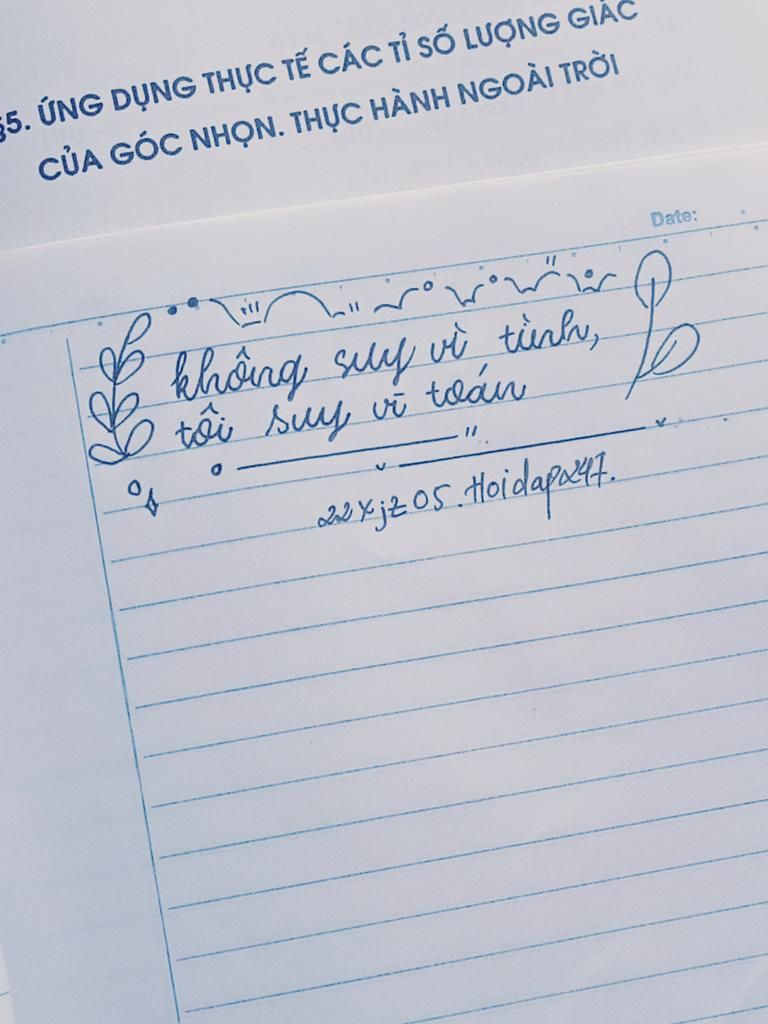 §5. ỨNG DỤNG THỰC TẾ CÁC TỈ SỐ LƯỢNG GIÁC
CỦA GÓC NHỌN. THỰC HÀNH NGOÀI TRỜI
Date:
không suy vì tình,
tôi suy vì toán
22XjZ05.Hoidap247.